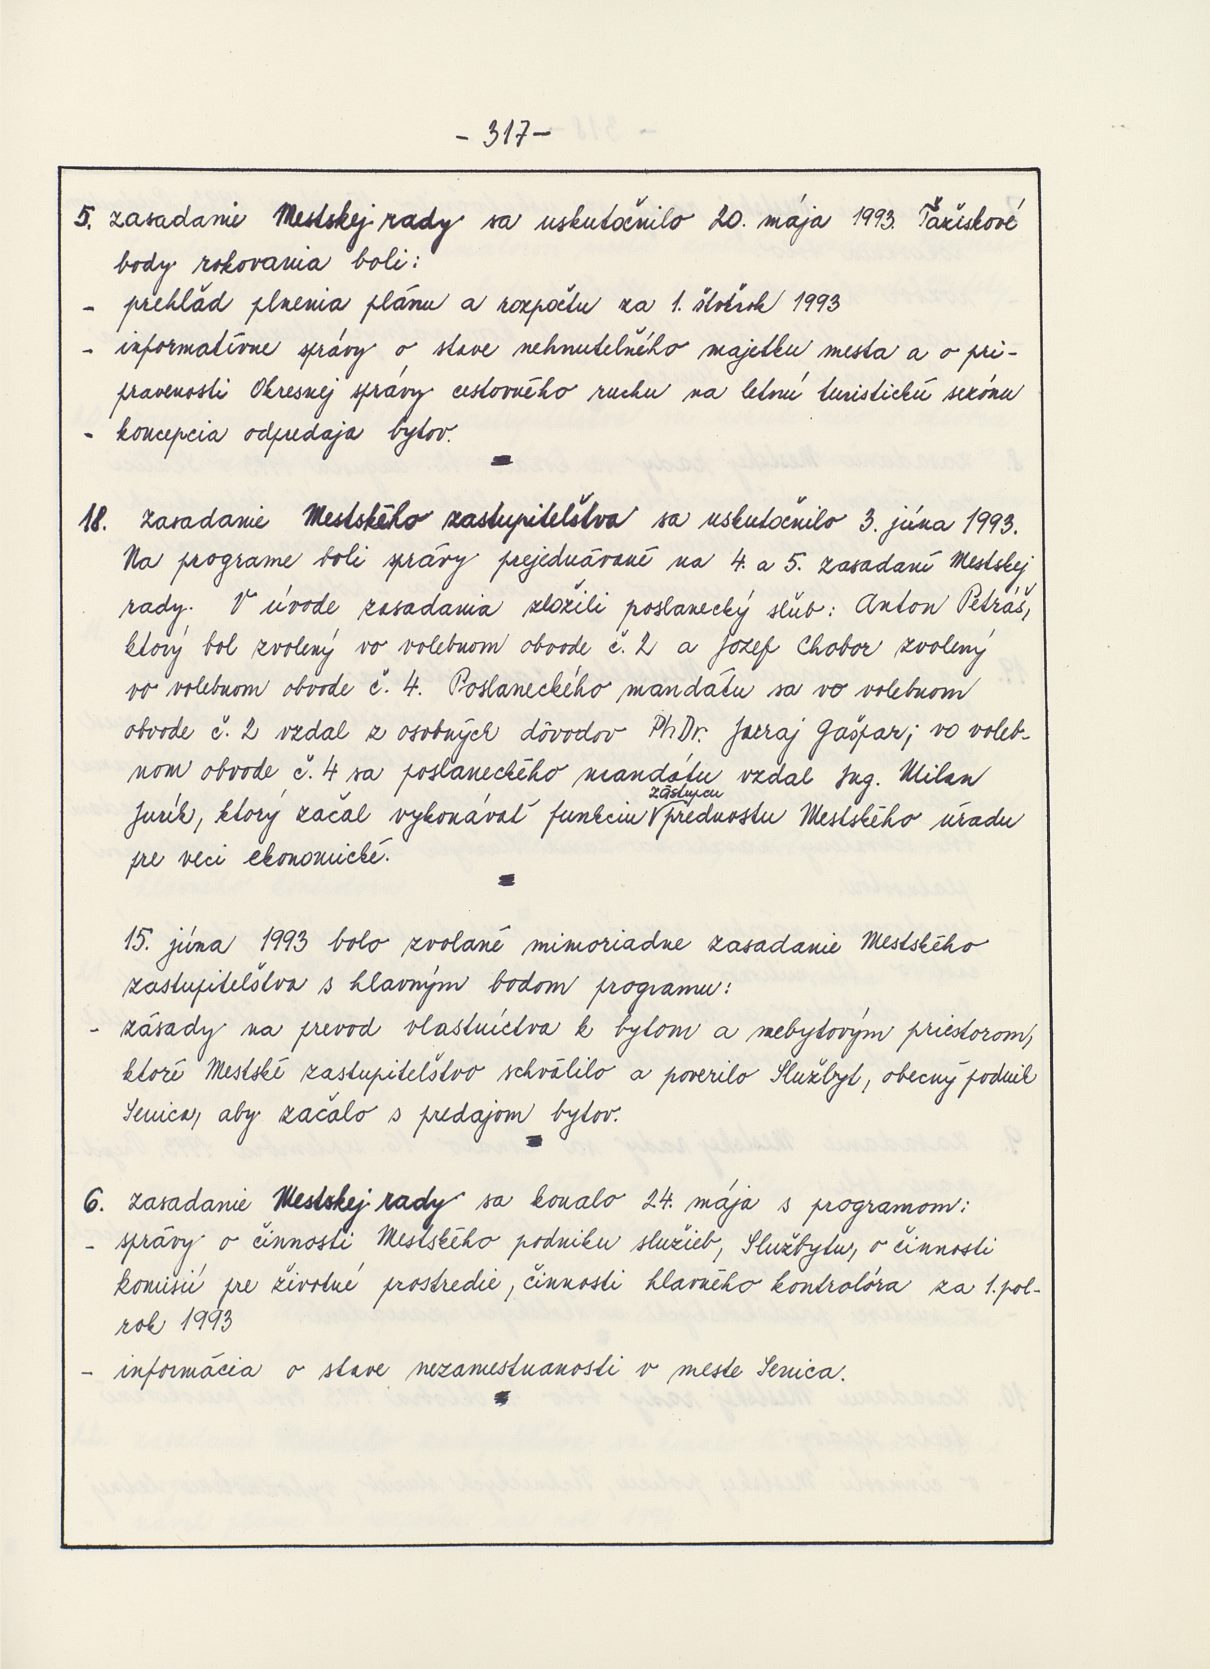 - 317 -
5. zasadanie Mestskej rady sa uskutočnilo 20. mája 1993. Ťažiskové
body rokovania boli:
- prehľad plnenia plánu a rozpočtu za 1. štvťrok 1993
- informatívne správy o stave nehnuteľného majetku mesta a o pri-
pravenosti Okresnej správy cestovného ruchu na letnú turistickú sezónu
- koncepcia odpredaja bytov.
18. zasadanie Mestského zastupiteľstva sa uskutočnilo 3. júna 1993.
Na programe boli správy prejednávané na 4. a 5. zasadaní Mestskej
rady. V úvode zasadania zložili poslanecký sľub: Anton Petráš,
ktorý bol zvolený vo volebnom obvode č. 2 a Jozef Chobor zvolený
vo volebnom obvode č. 4. Poslaneckého mandátu sa vo volebnom
obvode č. 2 vzdal z osobných dôvodov PhDr. Juraj Gašpar; vo voleb-
nom obvode č. 4 sa poslaneckého mandátu vzdal Ing. Milan
zástupcu
Jurík, ktorý začal vykonávať funkciu prednostu Mestského úradu
pre veci ekonomické.
15. júna 1993 bolo zvolané mimoriadne zasadanie Mestského
zastupiteľstva s hlavným bodom programu:
- zásady na prevod vlastníctva k bytom a nebytovým priestorom,
ktoré Mestské zastupiteľstvo schválilo a poverilo Službyt, obecný podnik
Senica, aby začalo s predajom bytov.
6. zasadanie Mestskej rady sa konalo 24. mája s programom:
- správy o činnosti Mestského podniku služieb, Službytu, o činnosti
komisií pre životné prostredie, činnosti hlavného kontrolóra za 1. pol-
rok 1993
- informácia o stave nezamestnanosti v meste Senica.